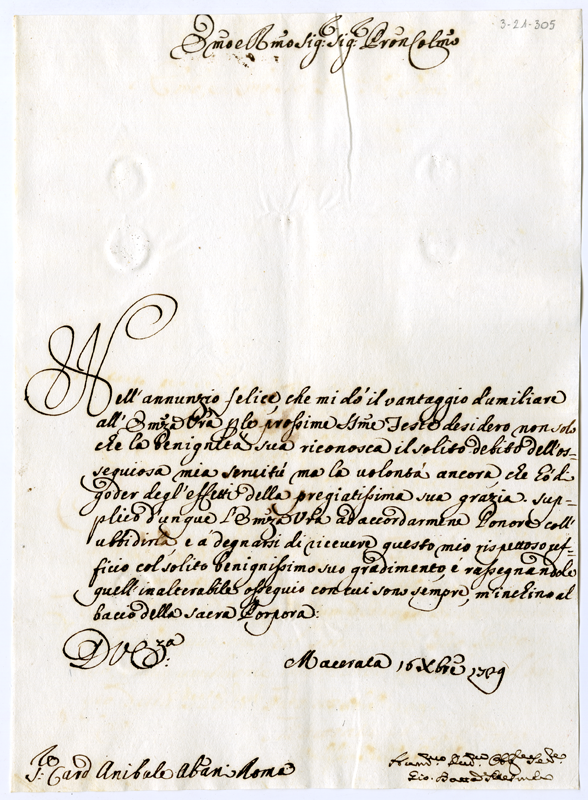 3-21-305
Emo e Rmo Sig: Sig: Pron Colmo
Nell'annunzio felice, che mi dò il vantaggio d'umiliare
all'Emza Vra p le prossime SSme Feste desidero non solo
che la benignità sua riconosca il solito debito dell'os=
sequiosa mia servitù ma la volontà ancora, che hò di
goder degl'effetti della pregiatissima sua grazia. Sup=
plico d'unque l'Emza Vra ad accordarmene l'onore coll'
ubbidirla, e a degnarsi di ricevere questo mio rispettoso uf=
ficio col solito benignissimo suo gradimento, e rassegnandole
quell'inalterabile ossequio con cui sono sempre, m'inchino al
bacio della sacra Porpora:
D V Emza:
Macerata 16 Xbre 1709
S: Card Anibale Albani Roma